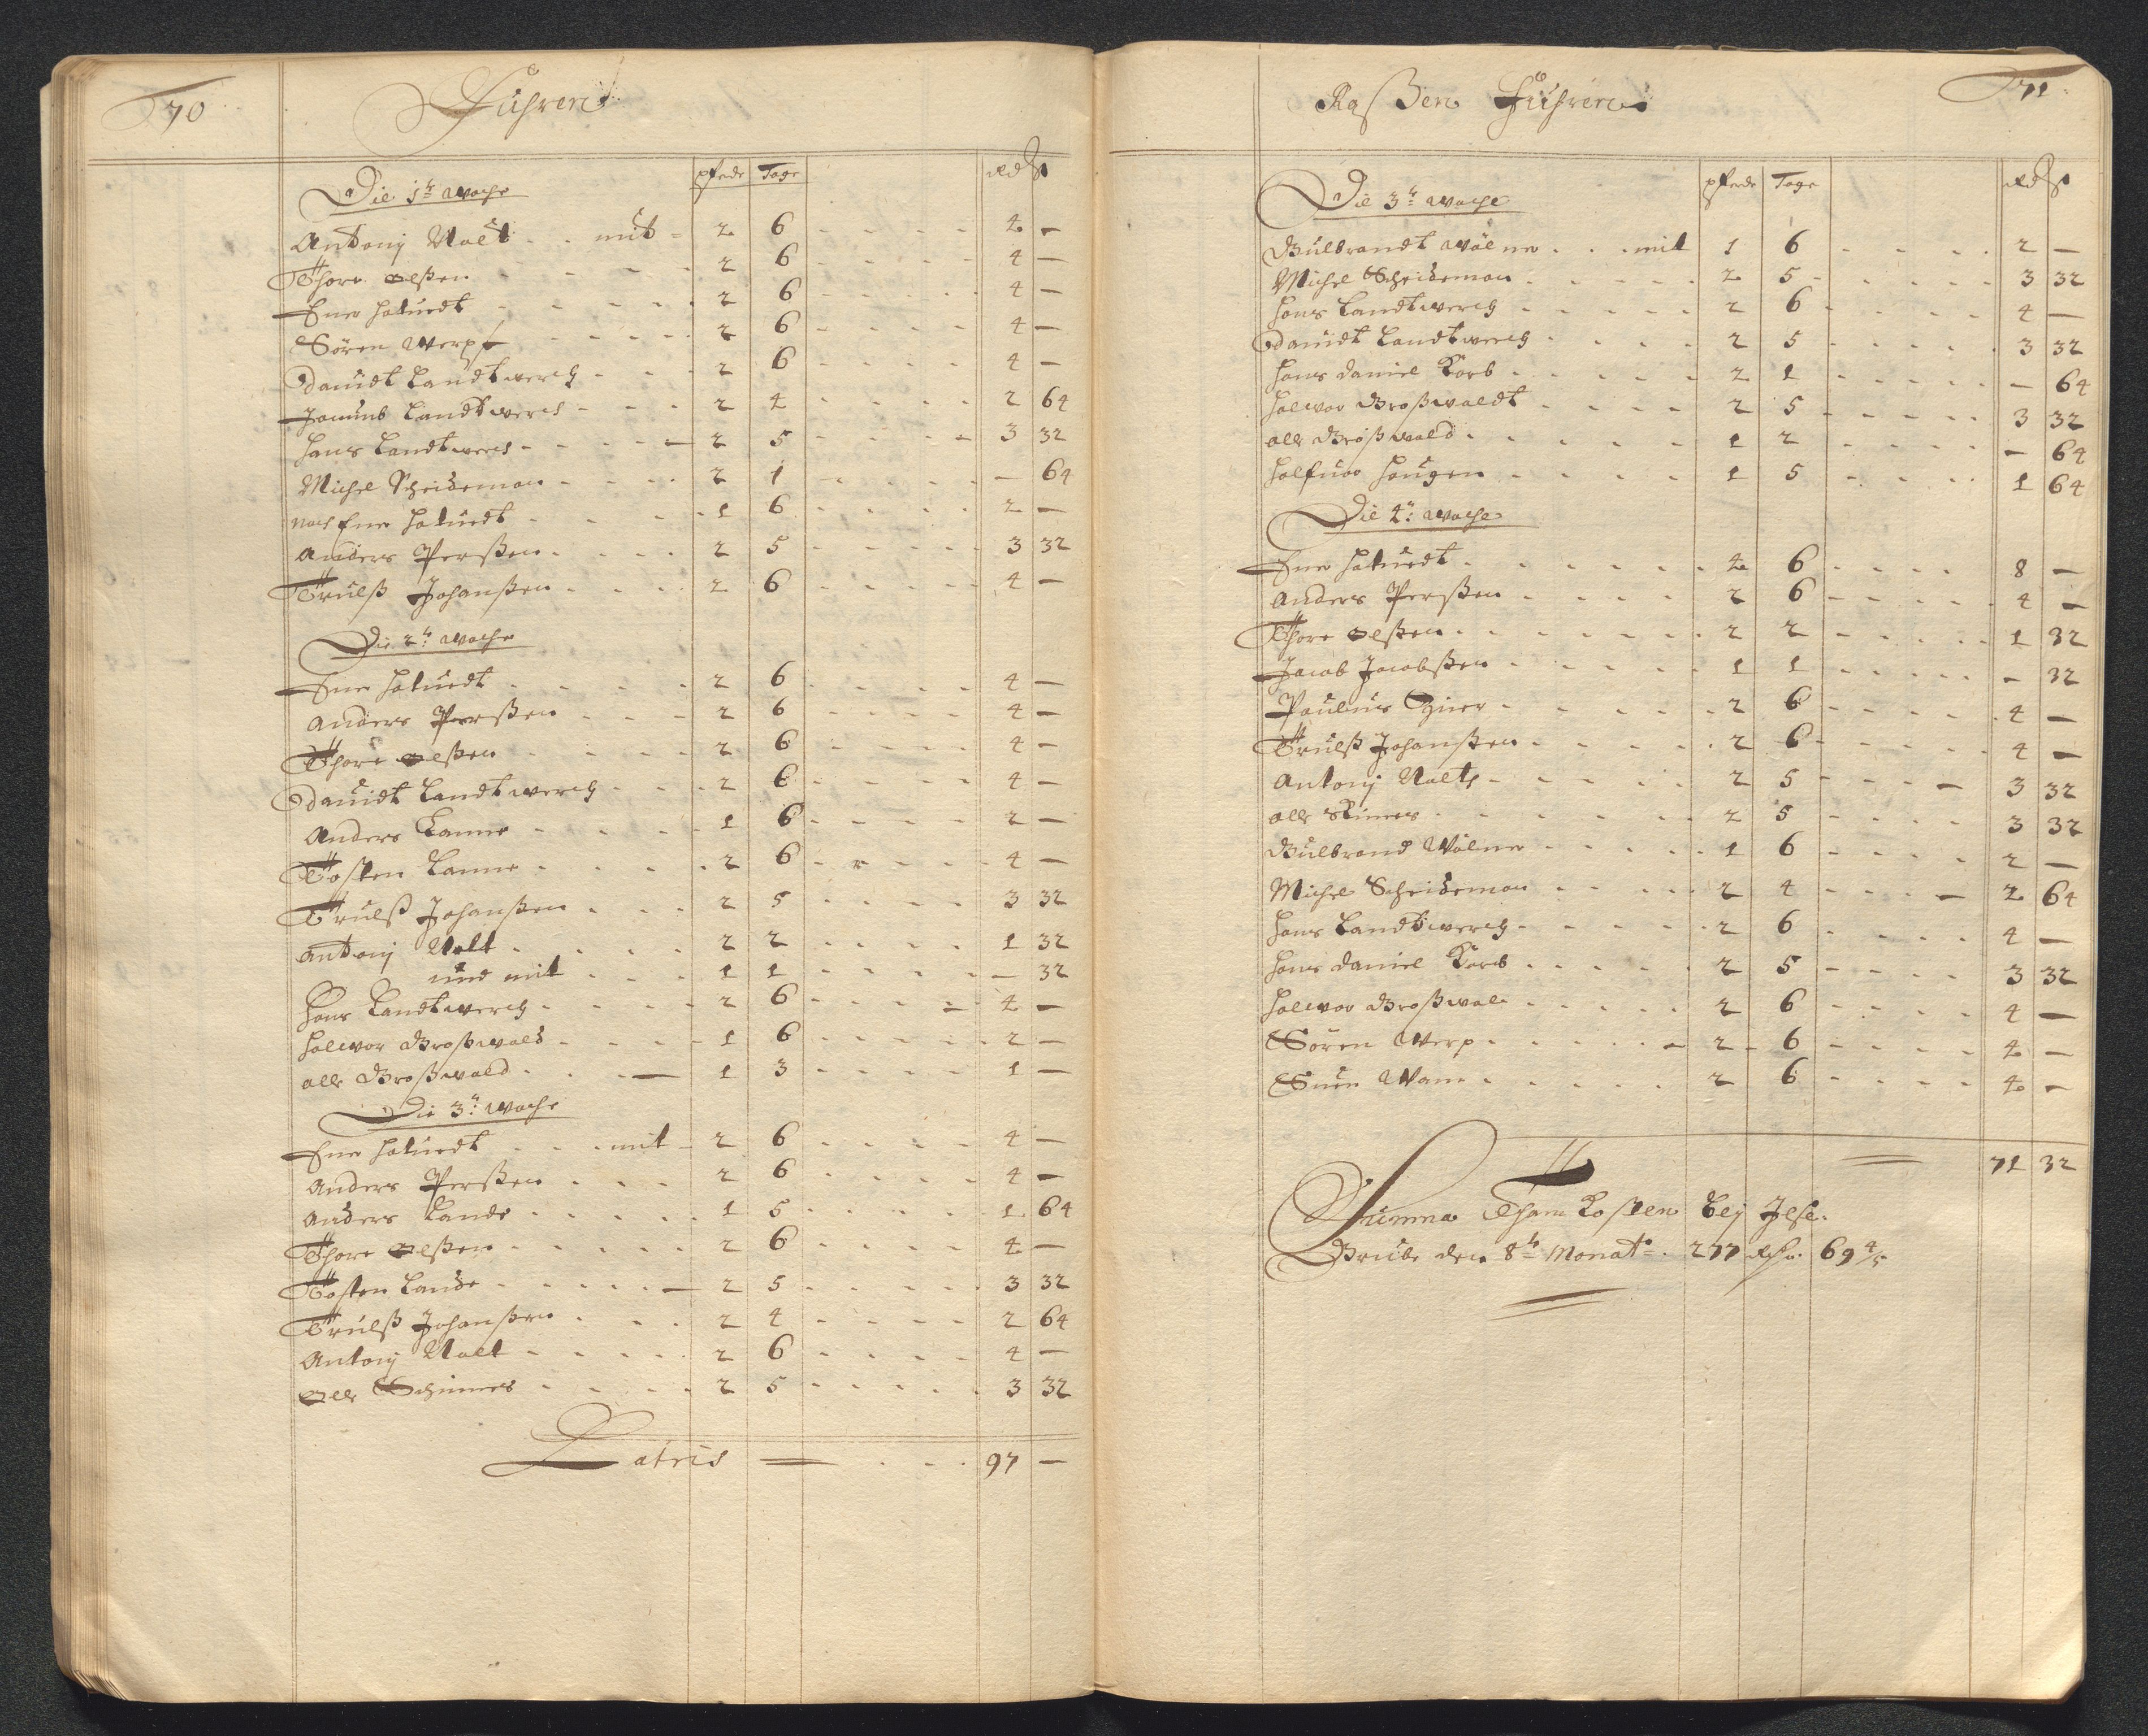 70
Führen
pferde Tage Rd ß
Die 1te Woche
Antonj Nolt - - mit - 2 6 - - - - 4 -
Thore Olßen - - - - 2 6 - - - - 4 -
Ener Hotuedt - - - - 2 6 - - - - 4 -
Sören Werpf - - - - 2 6 - - - - 4 -
Dauidt Landtwerch - - - 2 6 - - - - 4 -
Landtwerch - - - 2 4 - - - - 2 64
Hans Landtwerch - - - - 2 5 - - - - 3 32
Michel Scheideman - - - - 2 1 - - - - - 64
noch Ener Hotuedt - - - - 1 6 - - - - 2 -
Anders Perßen - - - - 2 5 - - - - 3 32
Trulß Johanßen - - - - 2 6 - - - - 4 -
Die 2te Woche
Ener Hotuedt - - - - 2 6 - - - - 4 -
Anders Perßen - - - 2 6 - - - - 4 -
Thore Olßen - - - - 2 6 - - - - 4 -
Dauidt Landtwerch - - - 2 6 - - - - 4 -
Anders Lanne - - - - 1 6 - - - - 2 -
Tosten Lanne - - - - 2 6 - - - - 4 -
Trulß Johanßen - - - 2 5 - - - - 3 32
Antonj Nolt - - - - 2 2 - - - - 1 32
und mit - - - 1 1 - - - - - 32
Hans Landtwerch - - - - 2 6 - - - - 4 -
Halwor Großwald - - - - 1 6 - - - - 2 -
Olle Großwald - - - - 1 3 - - - - 1 -
Die 3te Woche
Ener Hotuedt - - - mit - 2 6 - - - - 4 -
Anders Perßen - - - 2 6 - - - - 4 -
Anders Lande - - - - 1 5 - - - - 1 64
Thore Olßen - - - - 2 6 - - - - 4 -
Tosten Lande - - - - 2 5 - - - - 3 32
Trulß Johanßen - - - 2 4 - - - - 2 64
Antonj Nolt - - - - 2 6 - - - - 4 -
Olle Schimes - - - - 2 5 - - - - 3 32
Latris - - - 97 -
71
Roßen Führen
pferde Tage Rd ß
Die 3te Woche
Gulbrandt Wölner - - - mit 1 6 - - - - 2 -
Michel Scheideman - - - - 2 5 - - - - 3 32
Hans Landtwerch - - - - 2 6 - - - - 4 -
Dauidt Landtwerch - - - - 2 5 - - - - 3 32
Hans Daniel Korb - - - - 2 1 - - - - - 64
Halwor Großwaldt - - - - 2 5 - - - - 3 32
Olle Großwald - - - - 1 2 - - - - - 64
Halfuor Haugen - - - - 1 5 - - - - 1 64
Die 4te Woche
Ener Hotuedt - - - - 4 6 - - - - 8 -
Anders Perßen - - - - 2 6 - - - - 4 -
Thore Olßen - - - - 2 2 - - - - 1 32
Jacob Jacobßen - - - - 1 1 - - - - - 32
Paulus - - - - 2 6 - - - - 4 -
Trulß Johanßen - - - - 2 6 - - - - 4 -
Antonj Nolts - - - - 2 5 - - - - 3 32
Olle Skimes - - - - 2 5 - - - - 3 32
Gulbrand Wölner - - - - 1 6 - - - - 2 -
Michel Scheideman - - - - 2 4 - - - - 2 64
Hans Landtwerch - - - - 2 6 - - - - 4 -
Hans Daniel Korb - - - - 2 5 - - - - 3 32
Halwor Großwal - - - - 2 6 - - - - 4 -
Sören Werp - - - - 2 6 - - - - 4 -
Wam - - - - 2 6 - - - - 4 -
71 32
Summa Kosten bey
Grube den 8te Monat - 277 Rthr. 69 4/5